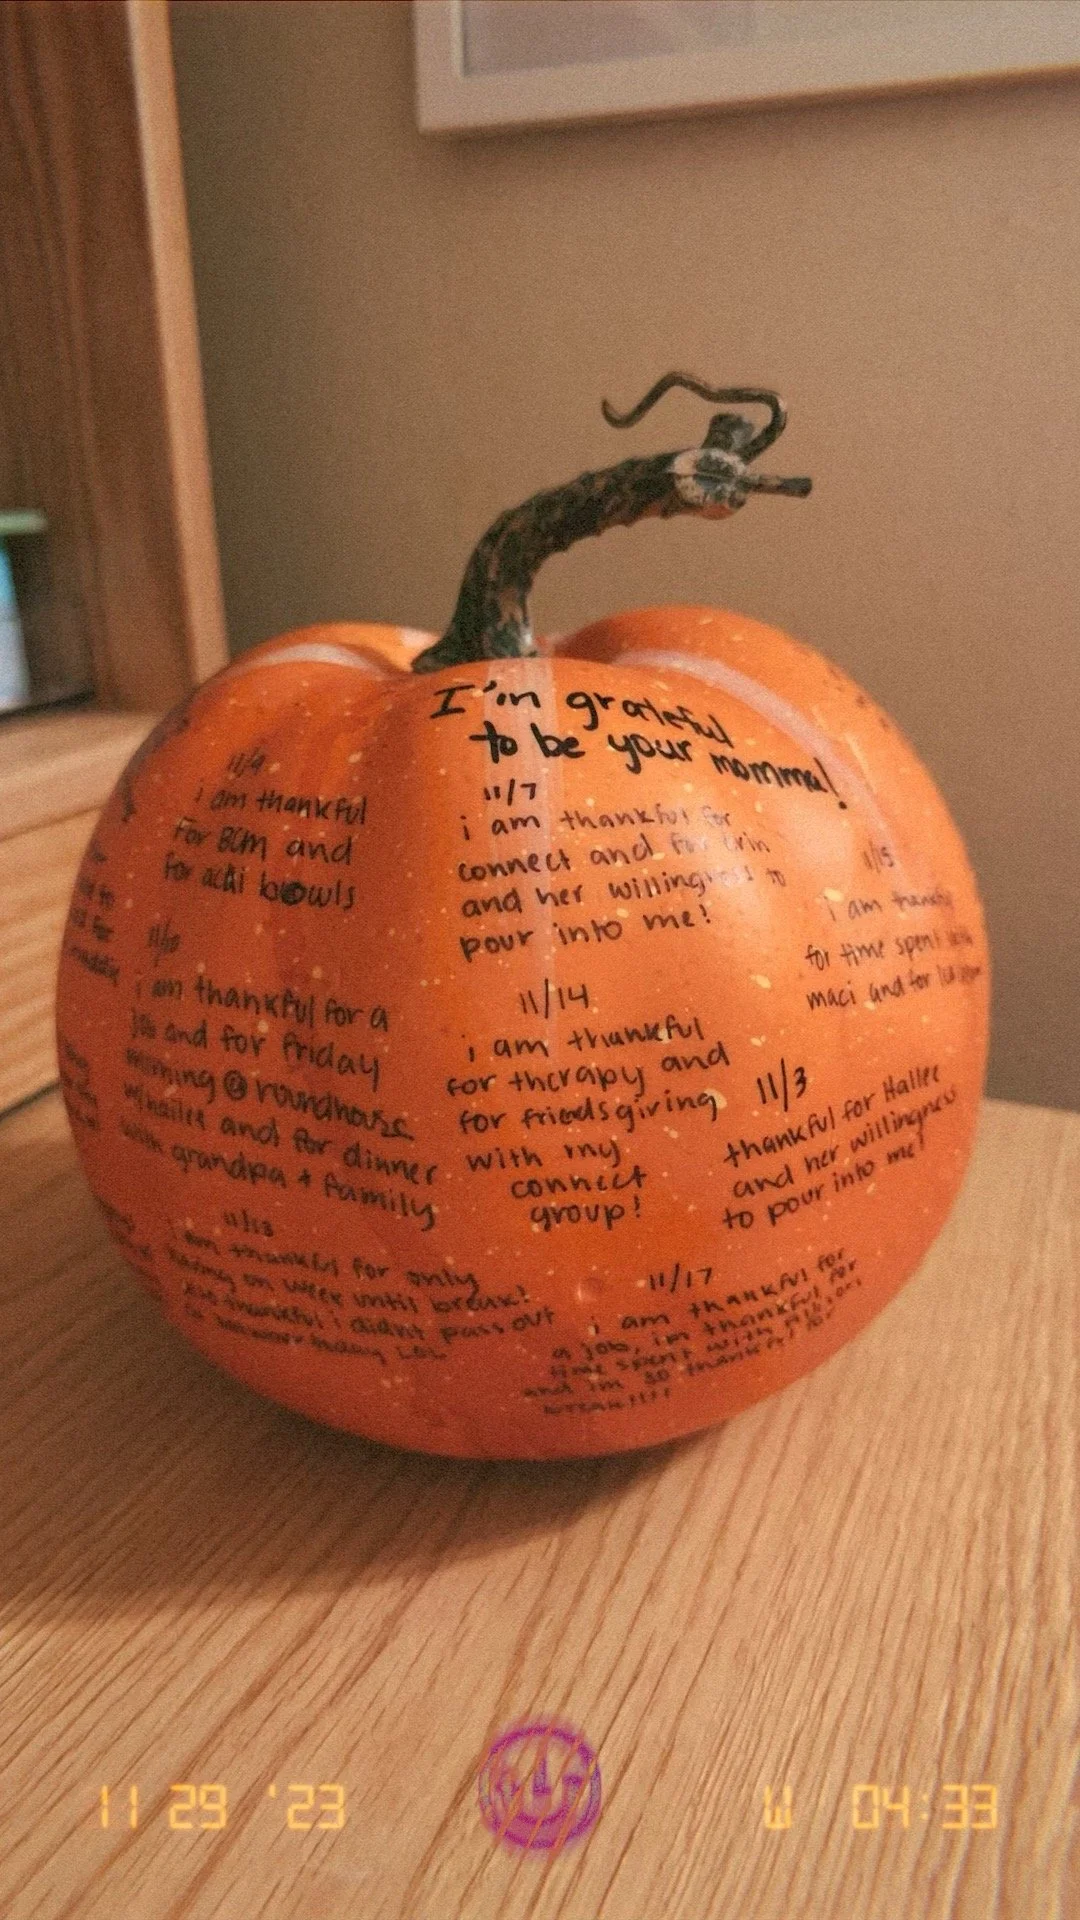 I'm grateful
to be your momma!
11/9
i am thankful
for BCM and
for acai bowls
11/7
i am thankful for
connect and for Erin
and her willingness to
pour into me!
11/15
i am thankful
for time spent with
maci and for
11/10
i am thankful for a
job and for friday
morning @ roundhouse
w/hailee and for dinner
with grandpa + family
11/14
i am thankful
for therapy and
for friendsgiving
with my
connect
group!
11/3
thankful for Hallee
and her willingness
to pour into me!
11/13
i am thankful for only
having on week until break!
also thankful i didnt pass out
today LOL
11/17
i am thankful for
a job, im thankful for
time spent with
and im so thankful for
break!!!!
11 29 '23
W 04:33